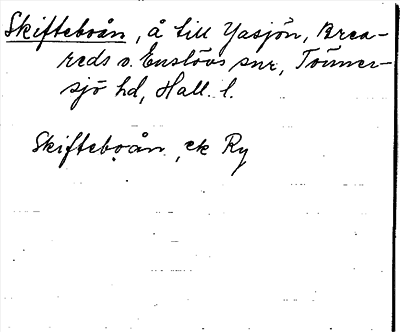 Skifteboån, å till Yasjön, Brea-
reds o. Enslövs snr, Tönner-
sjö hd, Hall. l.
Skifteboån, ek Ry